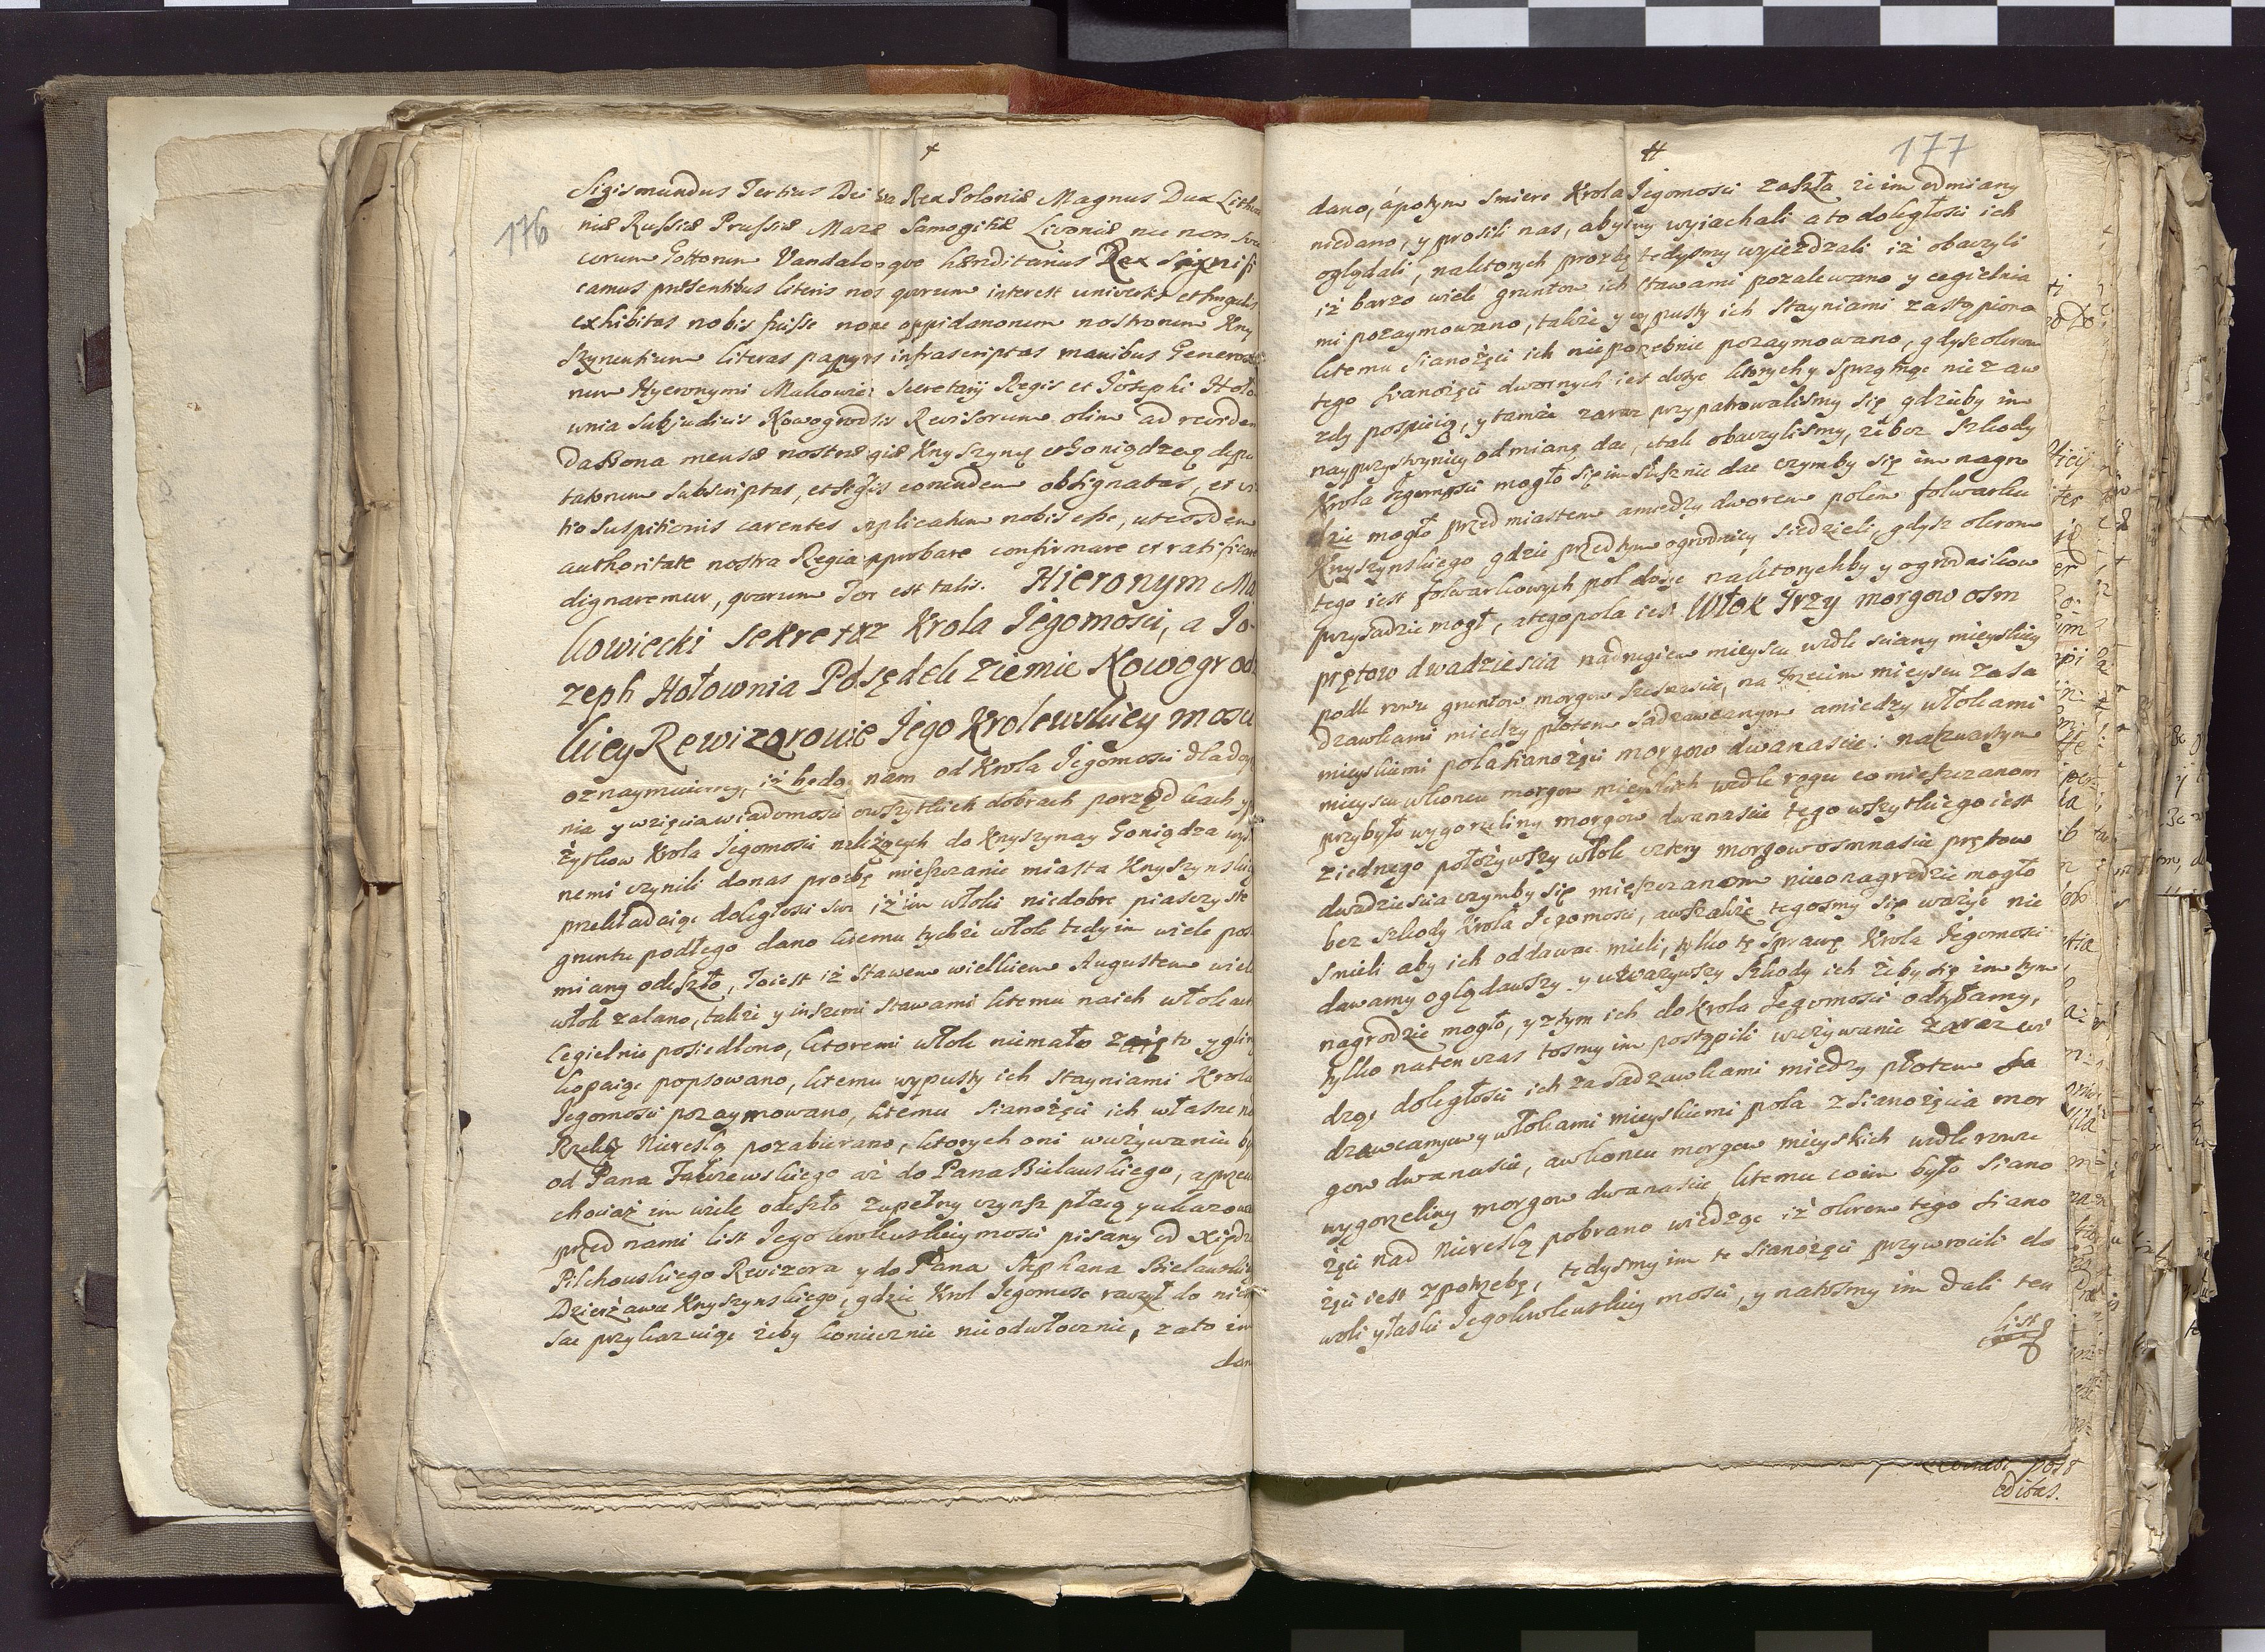 176
Sigismundus Tertius Dei gra Rex Poloniæ Magnus Dux Lithua
niæ Russiæ Prussiæ Maz Samogitiæ Livoniæ nec non Sve
corum Gottorum Vandalorqve hæreditarius Rex Signifi
camus præsentibus literis nos qvorum interest universis et singulis
exhibitas nobis fuisse noie oppidanorum nostrorum Kny
szynensium literas papyro infrascriptas manibus Generoso
rum Hyeronymi Makowiec Secretarij Regis et Josephi Hoło
wnia Subjudicis Nowogrodsis Revisorum olim ad revidē
da Bona mensæ nostræ giæ Knyszyn et Goniądzaq depu
tatorum subscriptas, et Sigis eorundem obsignatas, et vi
tio suspitionis carentes Supplicatum nobis esse, ut eosdem
authoritate nostra Regia approbare confirmare et ratificare
dignaremur, qvarum Tor est talis. Hieronym Ma
kowiecki Sekretarz Krola Jegomosci, a Jo-
zeph Hołownia Podsędek Ziemie Nowogrod
kiey Rewizorowie Jego Krolewskiey mosci
oznaymuiemy, iż będąc nam od Krola Jegomosci dla
nia y wzięcia wiadomosci o wszytkich dobrach porządkach y
żytkow Krola Jegomosci należących do Knyszyna y Goniądza
nemi czynili do nas prozbę mieszczanie miasta Knyszynskie
przekładaiąc doległosci swe iż im włoki niedobre piasczyste
gruntu podłego dano ktemu tychże włok tedy im wiele
miany odeszło, To iest iż Stawem wielkiem Augustem wiele
włok zalano, także y inszemi stawami ktemu na ich włokach
Cegielnie posiedlono, ktoremi włok niemało zaięto y gliny
kopaiąc popsowano, ktemu wypusty ich stayniami Krola
Jegomosci pozaymowano, ktemu sianożęci ich własne na
Rzeką Nieresłą pozabierano, ktorych oni w używaniu by
od Pana Fałczewskiego aż do Pana Bielawskiego, a przeci
chociaż im wiele odeszło zupełny czynsz płacą y ukazowa
przed nami list Jego krolewskiey mosci pisany od Xiędza
Pilchowskiego Rewizora y do Pana Stephana Bielawskie
Dzierżawce Knyszynskiego, gdzie Krol Jegomosc raczył do nich
sac przykazuiąc żeby koniecznie nieodwłocznie, za to im
dan
177
dano, a potym smierc Krola Jegomosci zaszła że im odmiany
niedano, y prosili nas, abysmy wyiachali a to doległosci ich
oglądali, na ktorych prozbę tedysmy wyieżdzali iż obaczyli
iż barzo wiele gruntow ich stawami pozalewano y cegielnia
mi pozaymowano, także y wypusty ich Stayniami zastąpiono
ktemu sianożęci ich niepotrzebnie pozaymowano, gdysz okrom
tego sianożęci dwornych iest dosyc ktorych y sprzątnąc nie zaw
zdy pospieią, y tamże zaraz przypatrowalismy się gdzieby im
nayprzystoyniey odmianę dac, a tak obaczylismy, że bez szkody
Krola Jegomosci mogło się im słusznie dac czymby się im nagro
dzic mogło przed miastem a miedzy dworem polem folwarku
Knyszynskiego gdzie przed tym ogrodnicy siedzieli, gdysz okrom
tego iest folwarkowych pol dosyc na ktorychby y ogrodnikow
przysadzic mogł, a tego pola iest Włok Trzy morgow osm
prętow dwadziescia na drugiem mieyscu wedle sciany mieyskiey
podle rowu gruntow morgow szesnascie, na Trzecim mieyscu za sa
dzawkami miedzy płotem sadzawczanym a miedzy włokami
mieyskiemi pola sianożęci morgow dwanascie: na czwartym
mieyscu w koncu morgow mieyskich wedle rogu co mieszczanom
przybyło wygorzeliny morgow dwanascie tego wszytkiego iest
z iednego położywszy włok cztery morgow osmnascie prętow
dwadziescia czymby się mieszczanom nieco nagrodzic mogło
bez szkody Krola Jegomosci, a wszakże tegosmy się ważyc nie
smieli aby ich oddawac mieli, tylko tę sprawę Krola Jegomosci
dawamy oglądawszy y uważywszy szkody ich żeby się im tym
nagrodzic mogło, y z tym ich do Krola Jegomosci odsyłamy,
tylko na ten czas tosmy im postąpili w używanie zaraz wi
dząc doległosci ich za Sadzawkami miedzy płotem Sa
dzawczanym y włokami mieyskiemi pola z sianożęcia mor
gow dwanascie, a w koncu morgow mieyskich wedle rowu
wygorzeliny morgow dwanascie ktemu co im było siano
żęci nad Nieresłą pobrano wiedząc iż okrom tego siano
żęci iest z potrzebę, tedysmy im te sianożęci przywrocili do
woli y łaski Jego krolewskiey mosci, y na tosmy im dali ten
list
editas.